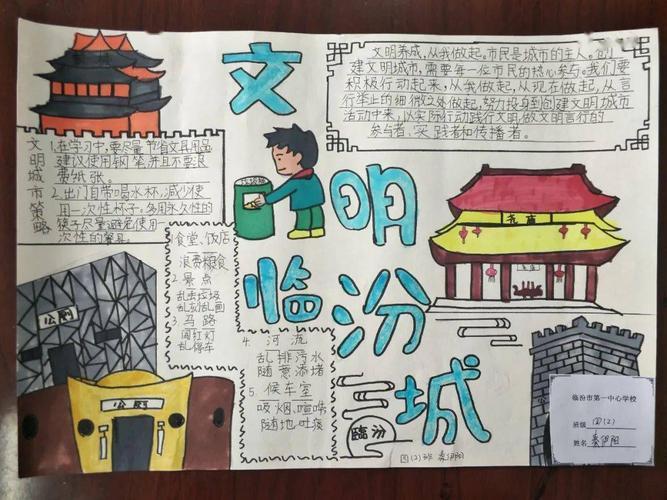 文明临汾城
文明养成,从我做起。市民是城市的主人。创
建文明城市,需要每一位市民的热心参与。我们要
积极行动起来,从我做起,从现在做起,从言
行举止的细微之处做起,努力投身到创建文明城市
活动中来,以实际行动践行文明,做文明言行的
参与者、实践者和传播者。
文明城市策略
1.在学习中,要尽量节省文具用品
建议使用钢笔,并且不要浪
费纸张。
2.出门自带喝水杯,减少使
用一次性杯子,多用永久性的
筷子尽量避免使用一
次性的餐具。
食堂、饭店
浪费粮食
2.景点
乱丢垃圾
乱刻乱画
3.马路
闯红灯
乱停车
4.河流
乱排污水
随意添堵
5.候车室
吸烟,喧哗
随地吐痰
尧庙
公厕
公厕
临汾
四(2)班
临汾市第一中心学校
班级 四(2)
姓名